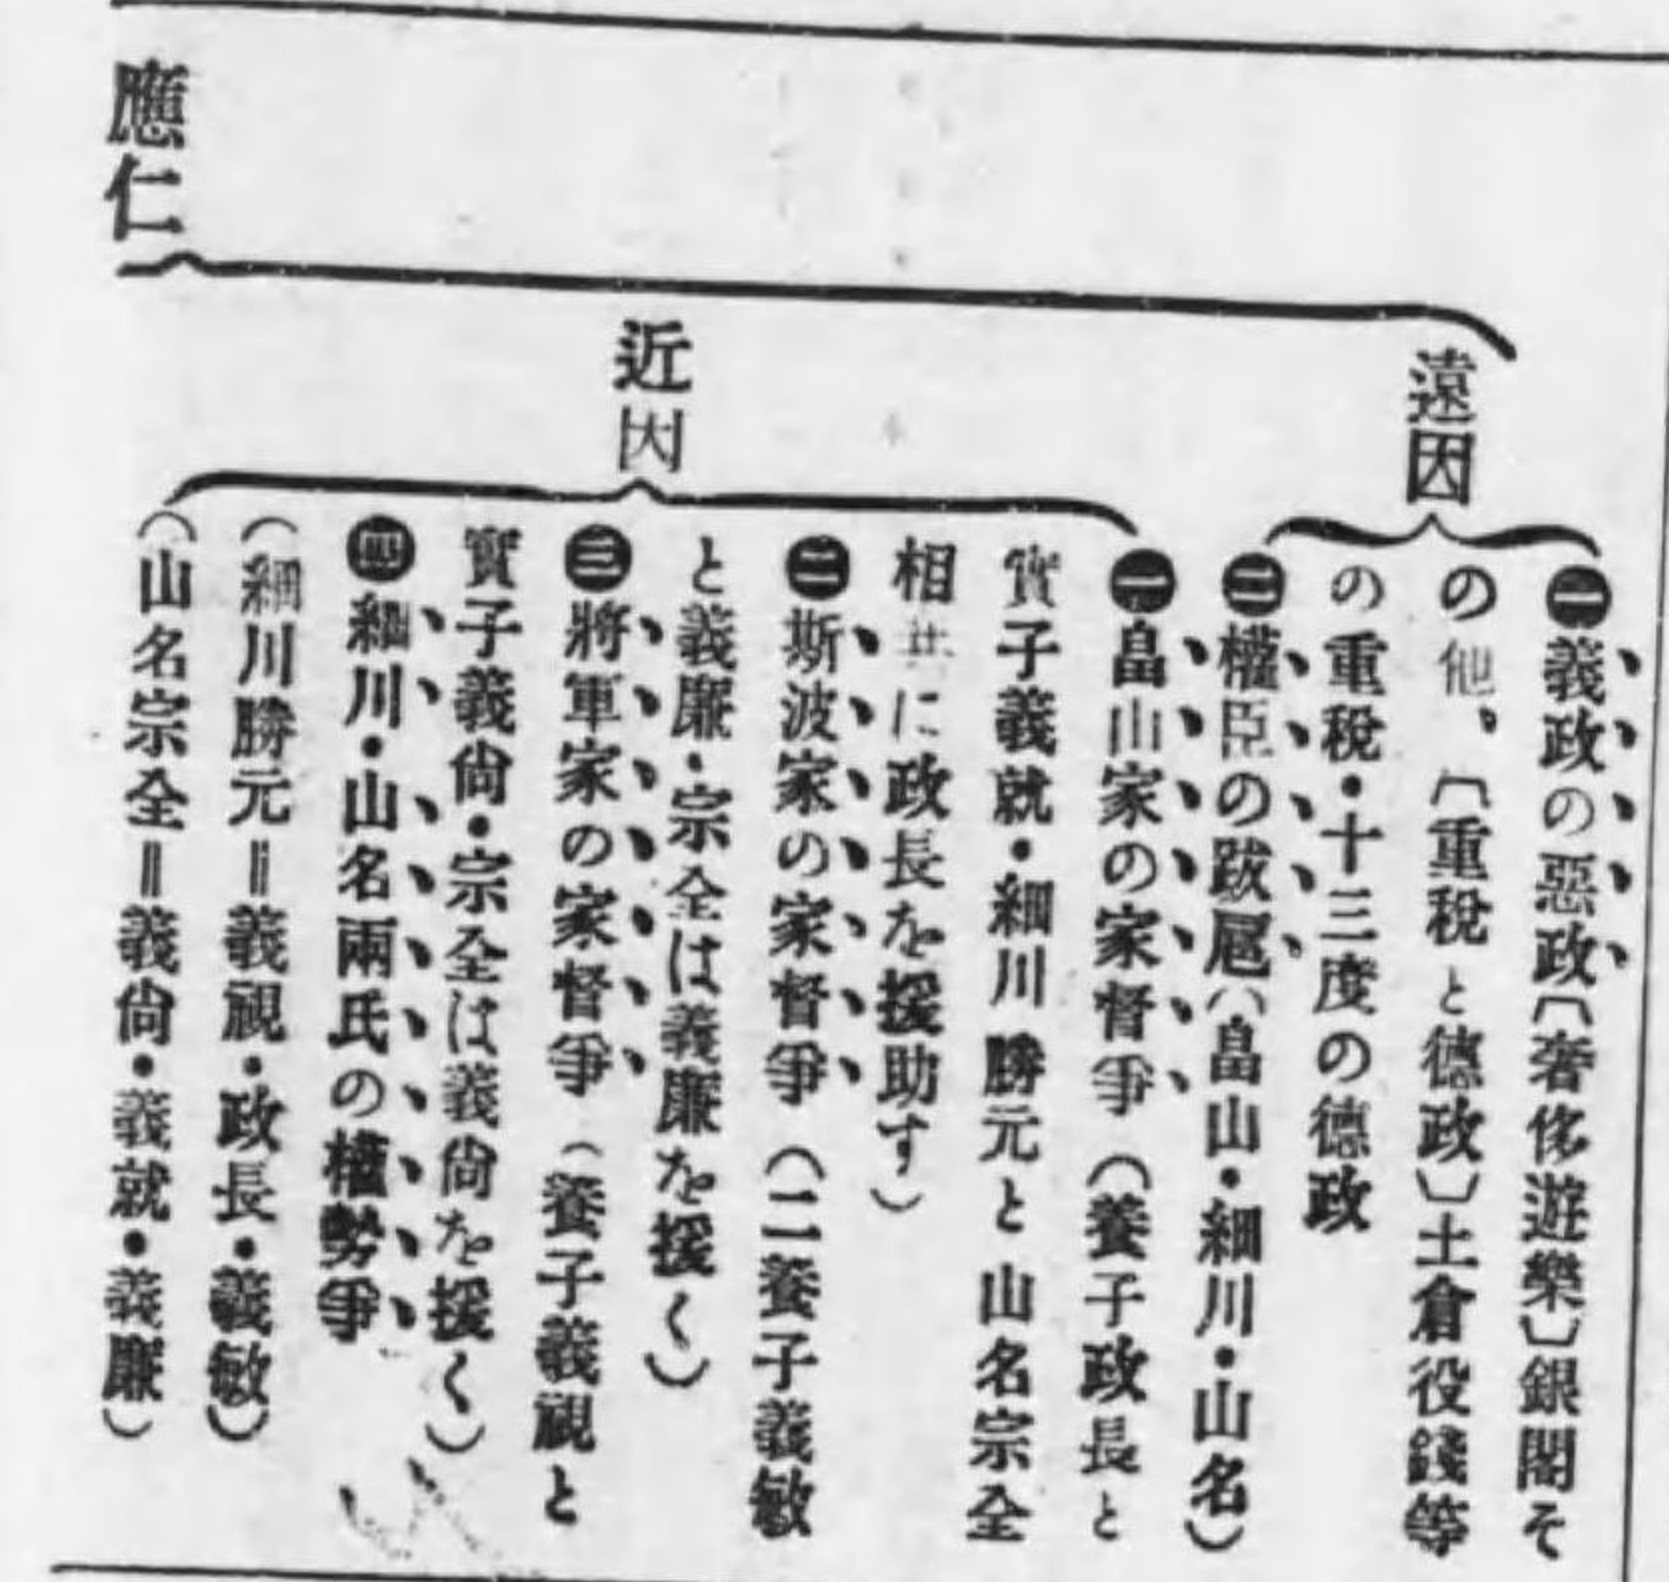 應仁
遠因
㊀義政の惡政〔奢侈遊樂〕銀閣そ
の他、〔重稅と德政〕土倉役錢等
の重稅・十三度の德政
㊁權臣の跋扈(畠山・細川・山名)
近因
㊀畠山家の家督爭(養子政長と
實子義就・細川勝元と山名宗全
相共に政長を援助す)
㊁斯波家の家督爭(二養子義敏
と義廉・宗全は義廉を援く)
㊂將軍家の家督爭(養子義視と
實子義尙・宗全は義尙を援く)
㊃細川・山名兩氏の權勢爭
(細川勝元=義視・政長・義敏)
(山名宗全=義尙・義就・義廉)